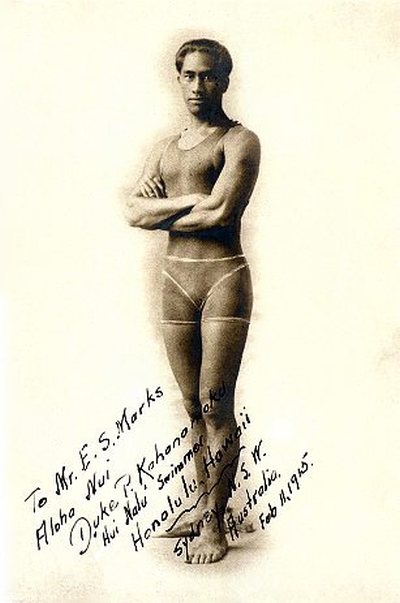 To Mr. E. S. Marks
Aloha Nui
Duke P. Kahanamoku
Hui Nalu Swimmer
Honolulu, Hawaii
Sydney N. S. W.
Australia.
Feb 11, 1915.